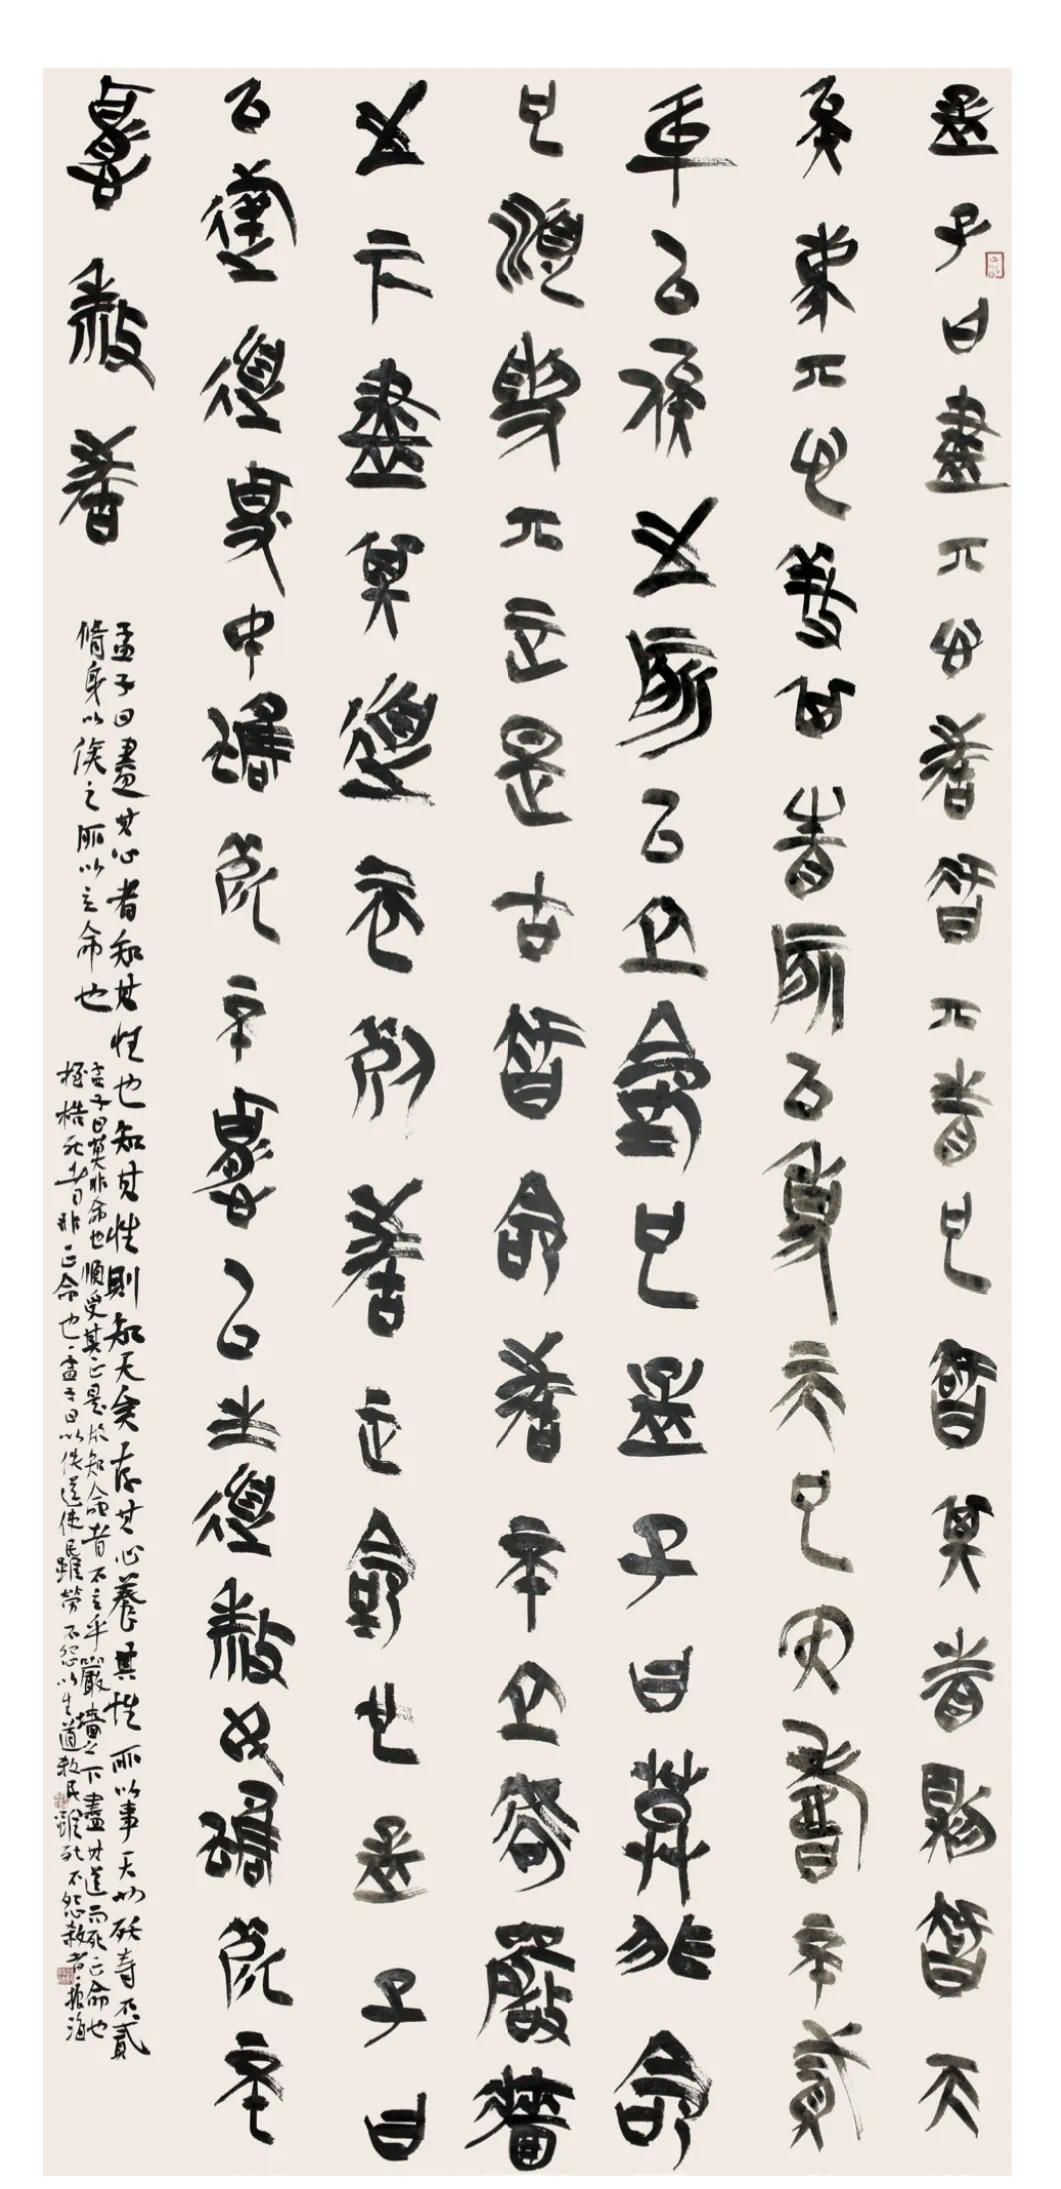 孟子曰盡其心者智其眚也智其眚則智天
矣存其心養其眚所以事天也夭壽不貳
身以俟之所以立命也孟子曰莫非命
也順受其正是古智命者不立乎巖牆
之下盡其道而死者正命也孟子曰
以佚道使民雖勞不怨以生道殺民雖死不
怨殺者
孟子曰盡其心者知其性也知其性則知天矣存其心養其性所以事天也殀壽不貳
脩身以俟之所以立命也
孟子曰莫非命也順受其正是故知命者不立乎巖墻之下盡其道而死正命也
桎梏死者非正命也孟子曰以佚道使民雖勞不怨以生道殺民雖死不怨殺者振海